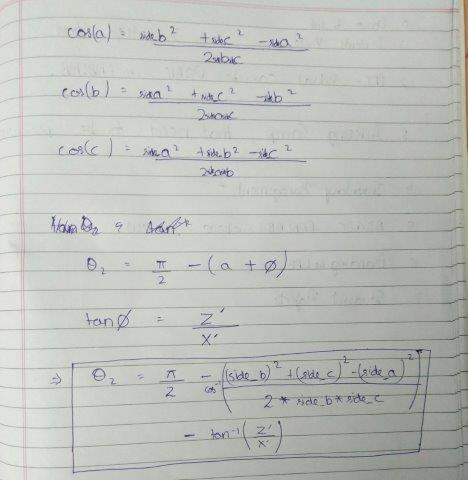 cos(a) = side_b² + side_c² - side_a² / 2 side_b side_c
cos(b) = side_a² + side_c² - side_b² / 2 side_a side_c
cos(c) = side_a² + side_b² - side_c² / 2 side_a side_b
θ₂ = π/2 - (a + Ø)
tanØ = Z' / X'
⇒ θ₂ = π/2 - cos⁻¹((side_b)² + (side_c)² - (side_a)² / 2 * side_b * side_c)
- tan⁻¹(Z'/X')